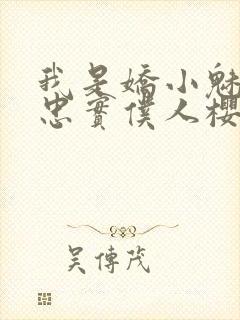 我是嬌小魅
忠實僕人櫻
吳傳茂